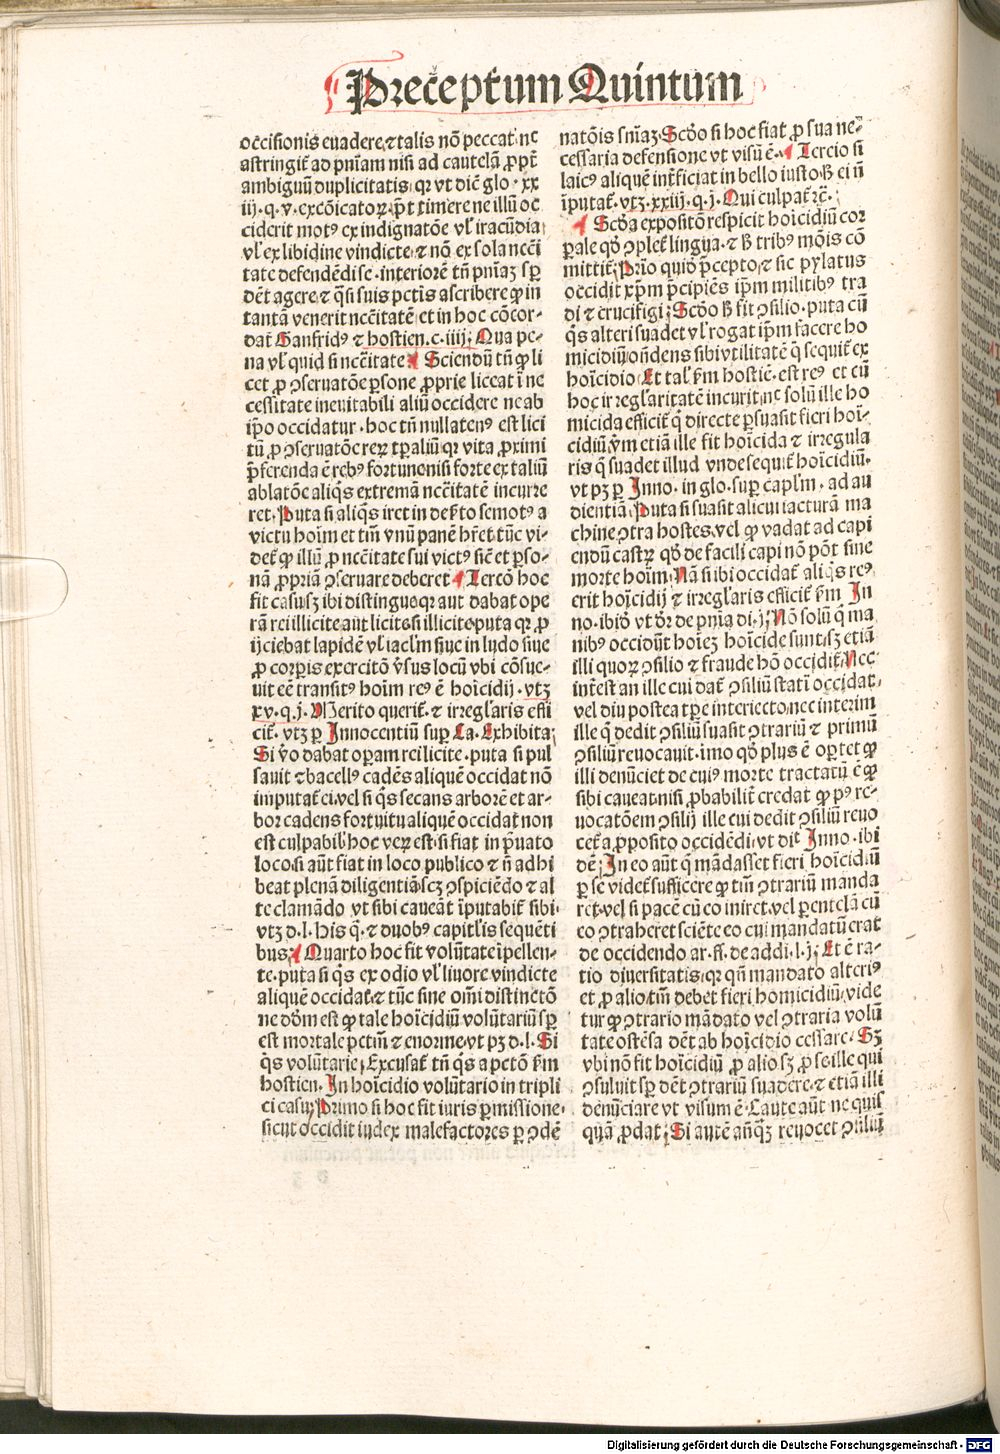 Preceptum Quintum
occisionis euadere.⁊ talis nō peccat nec
astringit̄ ad pn̄iam nisi ad cautelā ꝓpt̄
ambiguū duplicitatis qꝛ vt dic̄ glo. xx
iij. q. v. excōicatoꝝ. p̄t timere ne illū oc
ciderit motꝰ ex indignatōe vl' iracūdia
vl' ex libidine vindicte.⁊ nō ex sola ncc̄i
tate defendēdi se. interiorē tn̄ pn̄iaꝫ sꝑ
dēt agere ⁊ q̄si suis pctīs ascribere ꝙ in
tantā venerit ncc̄itatē et in hoc cōcor-
dat̄ Ganfridꝰ ⁊ hostien. c. iiij; Qua pe-
na vl' quid si ncc̄itate. Sciendū tn̄ ꝙ li
cet ꝓ ꝯseruatōe ꝑsone ꝓprie liceat ī ne
cessitate ineuitabili aliū occidere ne ab
ip̄o occidatur. hoc tn̄ nullatenꝰ est lici
tū ꝓ ꝯseruatōe reꝝ tꝑaliū qꝛ vita ꝓximi
p̄ferenda ē rebꝰ fortune nisi forte ex taliū
ablatōe aliq̄s extremā ncc̄itatē incurre
ret. Puta si aliq̄s iret in des̄to semotꝰ a
victu hoīm et tm̄ vnū panē hr̄et. tūc vi-
det̄ ꝙ illū ꝓ ncc̄itate sui victꝰ sic̄ et ꝑso-
nā ꝓpriā ꝯseruare deberet Tercō hoc
fit casu sꝫ ibi distinguo qꝛ aut dabat ope
rā rei illicite aut licite si illicite puta qꝛ ꝓ
ijciebat lapidē vl' iacl'm siue in ludo siue
ꝓ corꝑis exercitō v̄sus locū vbi cōsue-
uit eē transitꝰ hoīm reꝰ ē hoīcidij. vtꝫ
xv. q. j. Merito querit̄. ⁊ irregl'aris effi
cit̄. vtꝫ ꝑ Innocentiū suꝑ Ca. Exhibita;
Si v̄o dabat oꝑam rei licite. puta si pul
sauit ⁊ bacellꝰ cadēs aliquē occidat nō
imputat̄ ei. vel si q̄s secans arborē et ar-
bor cadens fortuitu aliquē occidat non
est culpabil' hoc veꝝ est. si fiat in p̄uato
loco. si aūt fiat in loco publico ⁊ n̄ adhi
beat plenā diligentiā scꝫ ꝯspiciēdo ⁊ al
te clamādo vt sibi caueāt īputabit̄ sibi.
vtꝫ d. l. his q̄. ⁊ duobꝰ capitl'is sequēti
bus; Quarto hoc fit volūtate īpellen-
te. puta si q̄s ex odio vl' liuore vindicte
aliquē occidat ⁊ tūc sine om̄i distinctō
ne dōm est ꝙ tale hoīcidiū volūtariū sꝑ
est mortale pctm̄ ⁊ enorme. vt pꝫ d. l. Si
q̄s voluntarie; Excusat̄ tn̄ q̄s a pctō ẜm
hostien. In hoīcidio volūtario in tripli
ci casu; Primo si hoc fit iuris ꝑmissione.
sicut occidit iudex malefactores ꝑ ꝯdē
natōis sn̄iaꝫ. Scd̄o si hoc fiat ꝓ sua ne-
cessaria defensione vt visū ē. Tercio si
laicꝰ aliquē int̄ficiat in bello iusto ꝫ ei n̄
īputat̄. vtꝫ. xxiij. q. j. Qui culpat̄ ⁊c̄.
Scd̄a expositō respicit hoīcidiū cor
ꝑale qd̓ ꝯplet̄ lingua. ⁊ ẜ tribꝰ mōis cō
mittit̄; Prīo quid p̄cepto. ⁊ sic pylatus
occidit xp̄m p̄cipiēs ip̄m militibꝰ tra
di ⁊ crucifigi; Scd̄o ẜ fit ꝯsilio. puta cū
q̄s alteri suadet vl' rogat ip̄m facere ho
micidiū on̄dens sibi vtilitatē q̄ sequit̄ ex
hoīcidio Et tal' ẜm hostiē. est reꝰ et cū
hoc irregl'aritatē incurit. nc̄ solū ille ho
micida efficit̄ q̄ directe ꝑsuasit fieri hoī-
cidiū. v̄m etiā ille fit hoīcida ⁊ irregula
ris q̄ suadet illud vnde sequit̄ hoīcidiū.
vt pꝫ ꝑ Inno. in glo. suꝑ capl'm. ad au
dientiā. Puta si suasit alicui iacturā ma
chine ꝯtra hostes. vel ꝙ vadat ad capi
endū castꝝ qd̓ de facili capi nō pōt sine
morte hoīm. Nā si ibi occidat̄ aliq̄s reꝰ
erit hoīcidij ⁊ irregl'aris efficit̄ ẜm In
no. ibid̓ vt d̓r de pn̄ia di. j; Nō solū q̄ ma
nibꝰ occidūt hoīeꝫ hoīcide sunt. sꝫ etiā
illi quoꝝ ꝯsilio ⁊ fraude hō occidit̄. Nec
int̄est an ille cui dat̄ ꝯsiliū statī occidat.
vel diu postea tꝑe interiecto. nec interim
ille q̄ dedit ꝯsiliū suasit ꝯtrariū ⁊ primū
ꝯsiliū reuocauit. imo qd̓ plus ē oꝑtet ꝙ
illi denūciet de cuiꝰ morte tractatū ē ꝙ
sibi caueat. nisi ꝓbabilit̄ credat ꝙ pꝰ re-
uocatōem ꝯsilij ille cui dedit ꝯsiliū reuo
cet̄ a ꝓposito occidēdi. vt dic̄ Inno. ibi
dē; In eo aūt q̄ mādasset fieri hoīcidiū
ꝑ se videt̄ sufficere ꝙ tm̄ ꝯtrariū manda
ret. vel si pacē cū eo iniret. vel ꝑentelā cū
eo ꝯtraheret sciēte eo cui mandatū erat
de occidendo ar. ff. de addi. l. j; Et ē ra-
tio diuersitatis. qꝛ qn̄ mandato alteriꝰ
et ꝓ alio tm̄ debet fieri homicidiū. vide
tur ꝙ ꝯtrario mādato vel ꝯtraria volū
tate ostēsa dēt ab hoīcidio cessare. Sꝫ
vbi nō fit hoīcidiū ꝓ alio sꝫ ꝓ se ille qui
ꝯsuluit sꝑ dēt ꝯtrariū suadere. ⁊ etiā illi
denūciare vt visum ē. Caute aūt ne quis
quā ꝓdat; Si autē an̄qꝫ reuocet ꝯsiliū
Digitalisierung gefördert durch die Deutsche Forschungsgemeinschaft - DFG